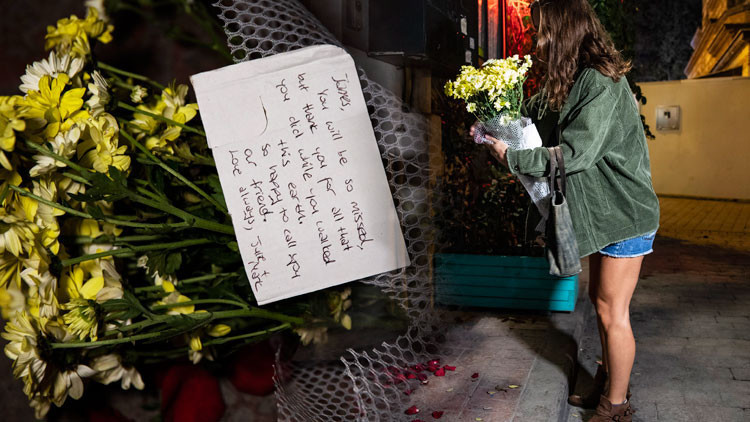 James,
You will be so missed,
but thank you for all that
you did while you walked
this earth.
so happy to call you
our friend.
Love always,